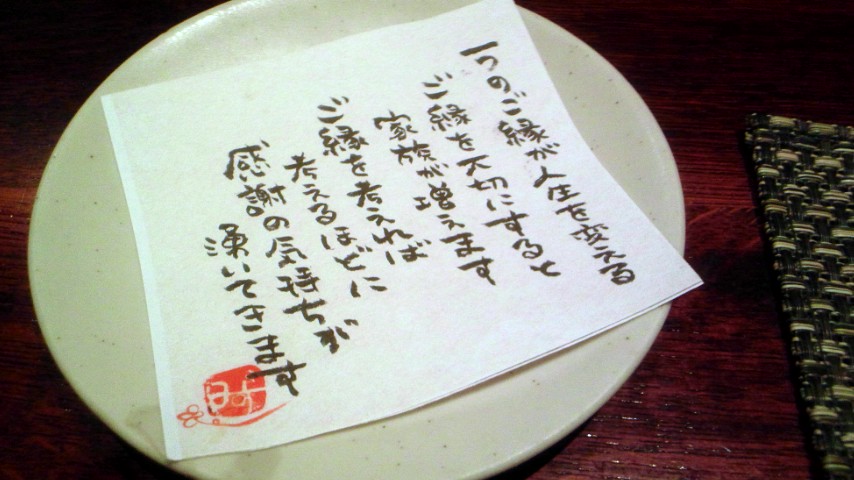 一つのご縁が人生を変える
ご縁を大切にすると
家族が増えます
ご縁を考えれば
考えるほどに
感謝の気持ちが
湧いてきます